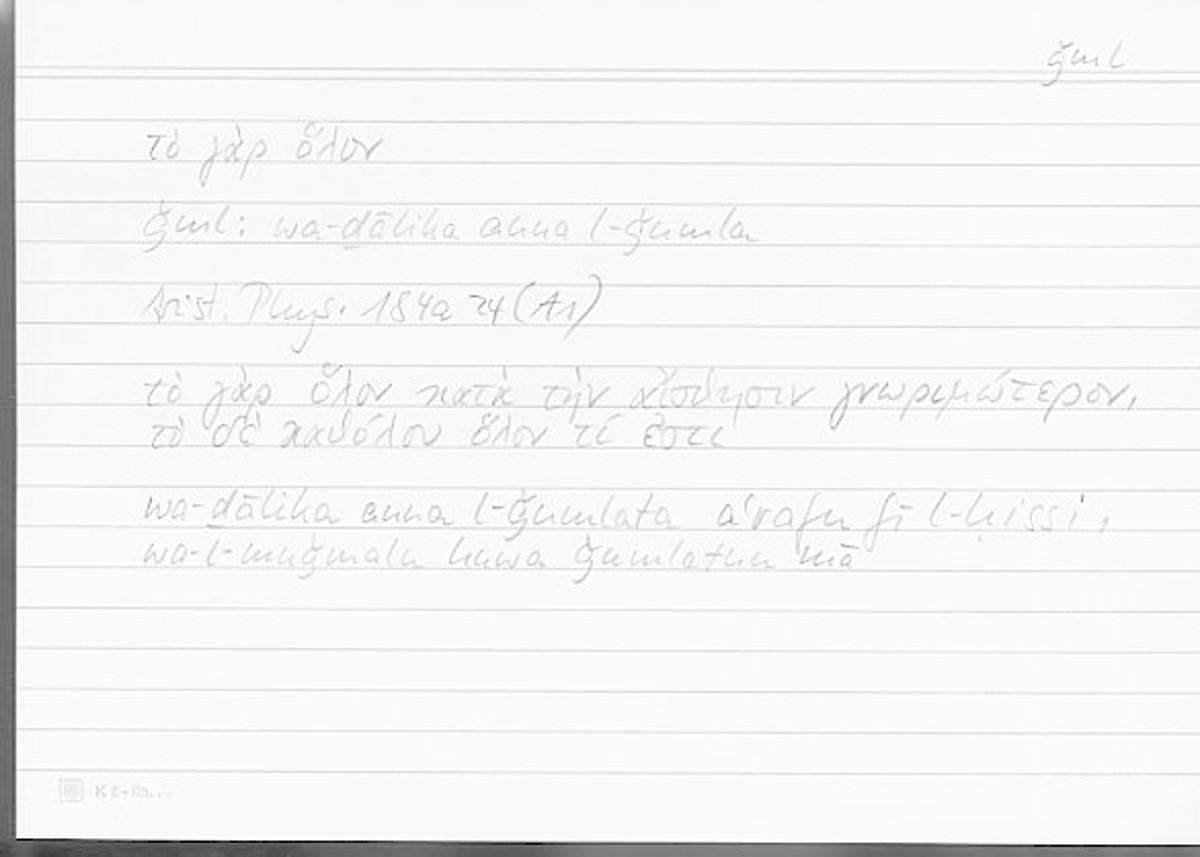 ǧml
τὸ γὰρ ὅλον
ǧml: wa-ḏālika anna l-ǧumla
Arist. Phys. 184a 24 (A1)
τὸ γὰρ ὅλον κατὰ τὴν αἴσθησιν γνωριμώτερον,
τὸ δὲ καθόλου ὅλον τί ἐστι
wa-ḏālika anna l-ǧumlata aʿrafu fī l-ḥissi,
wa-l-muǧmalu huwa ǧumlatun mā